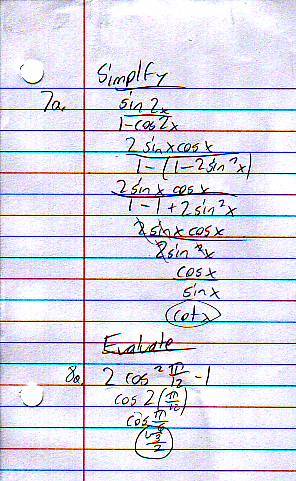 Simplfy
7a. sin 2x
1-cos2x
2 sinx cosx
1-(1-2sin²x)
2 sin x cos x
1-1+2sin²x
2sinx cosx
2sin²x
cosx
sinx
cotx
Evaluate
8a. 2 cos² π/12 -1
cos 2(π/12)
cos π/6
√3/2